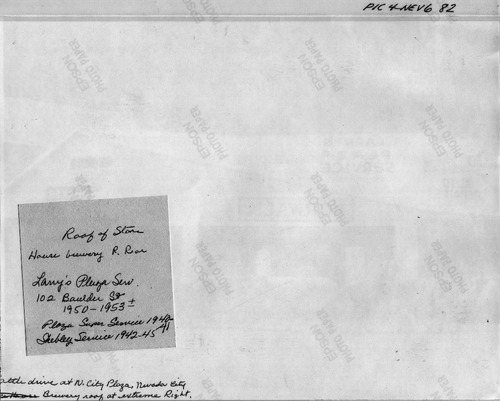 PIC 4-NEV6 82
EPSON
PHOTO PAPER
Roof of Stone
House brewery R. Rear
Larry's Plaza Serv.
102 Boulder St
1950-1953±
Plaza Super Service 1940-41
Shebley Service 1942-45
attle drive at N. City Plaza, Nevada City
Brewery roof at extreme Right.